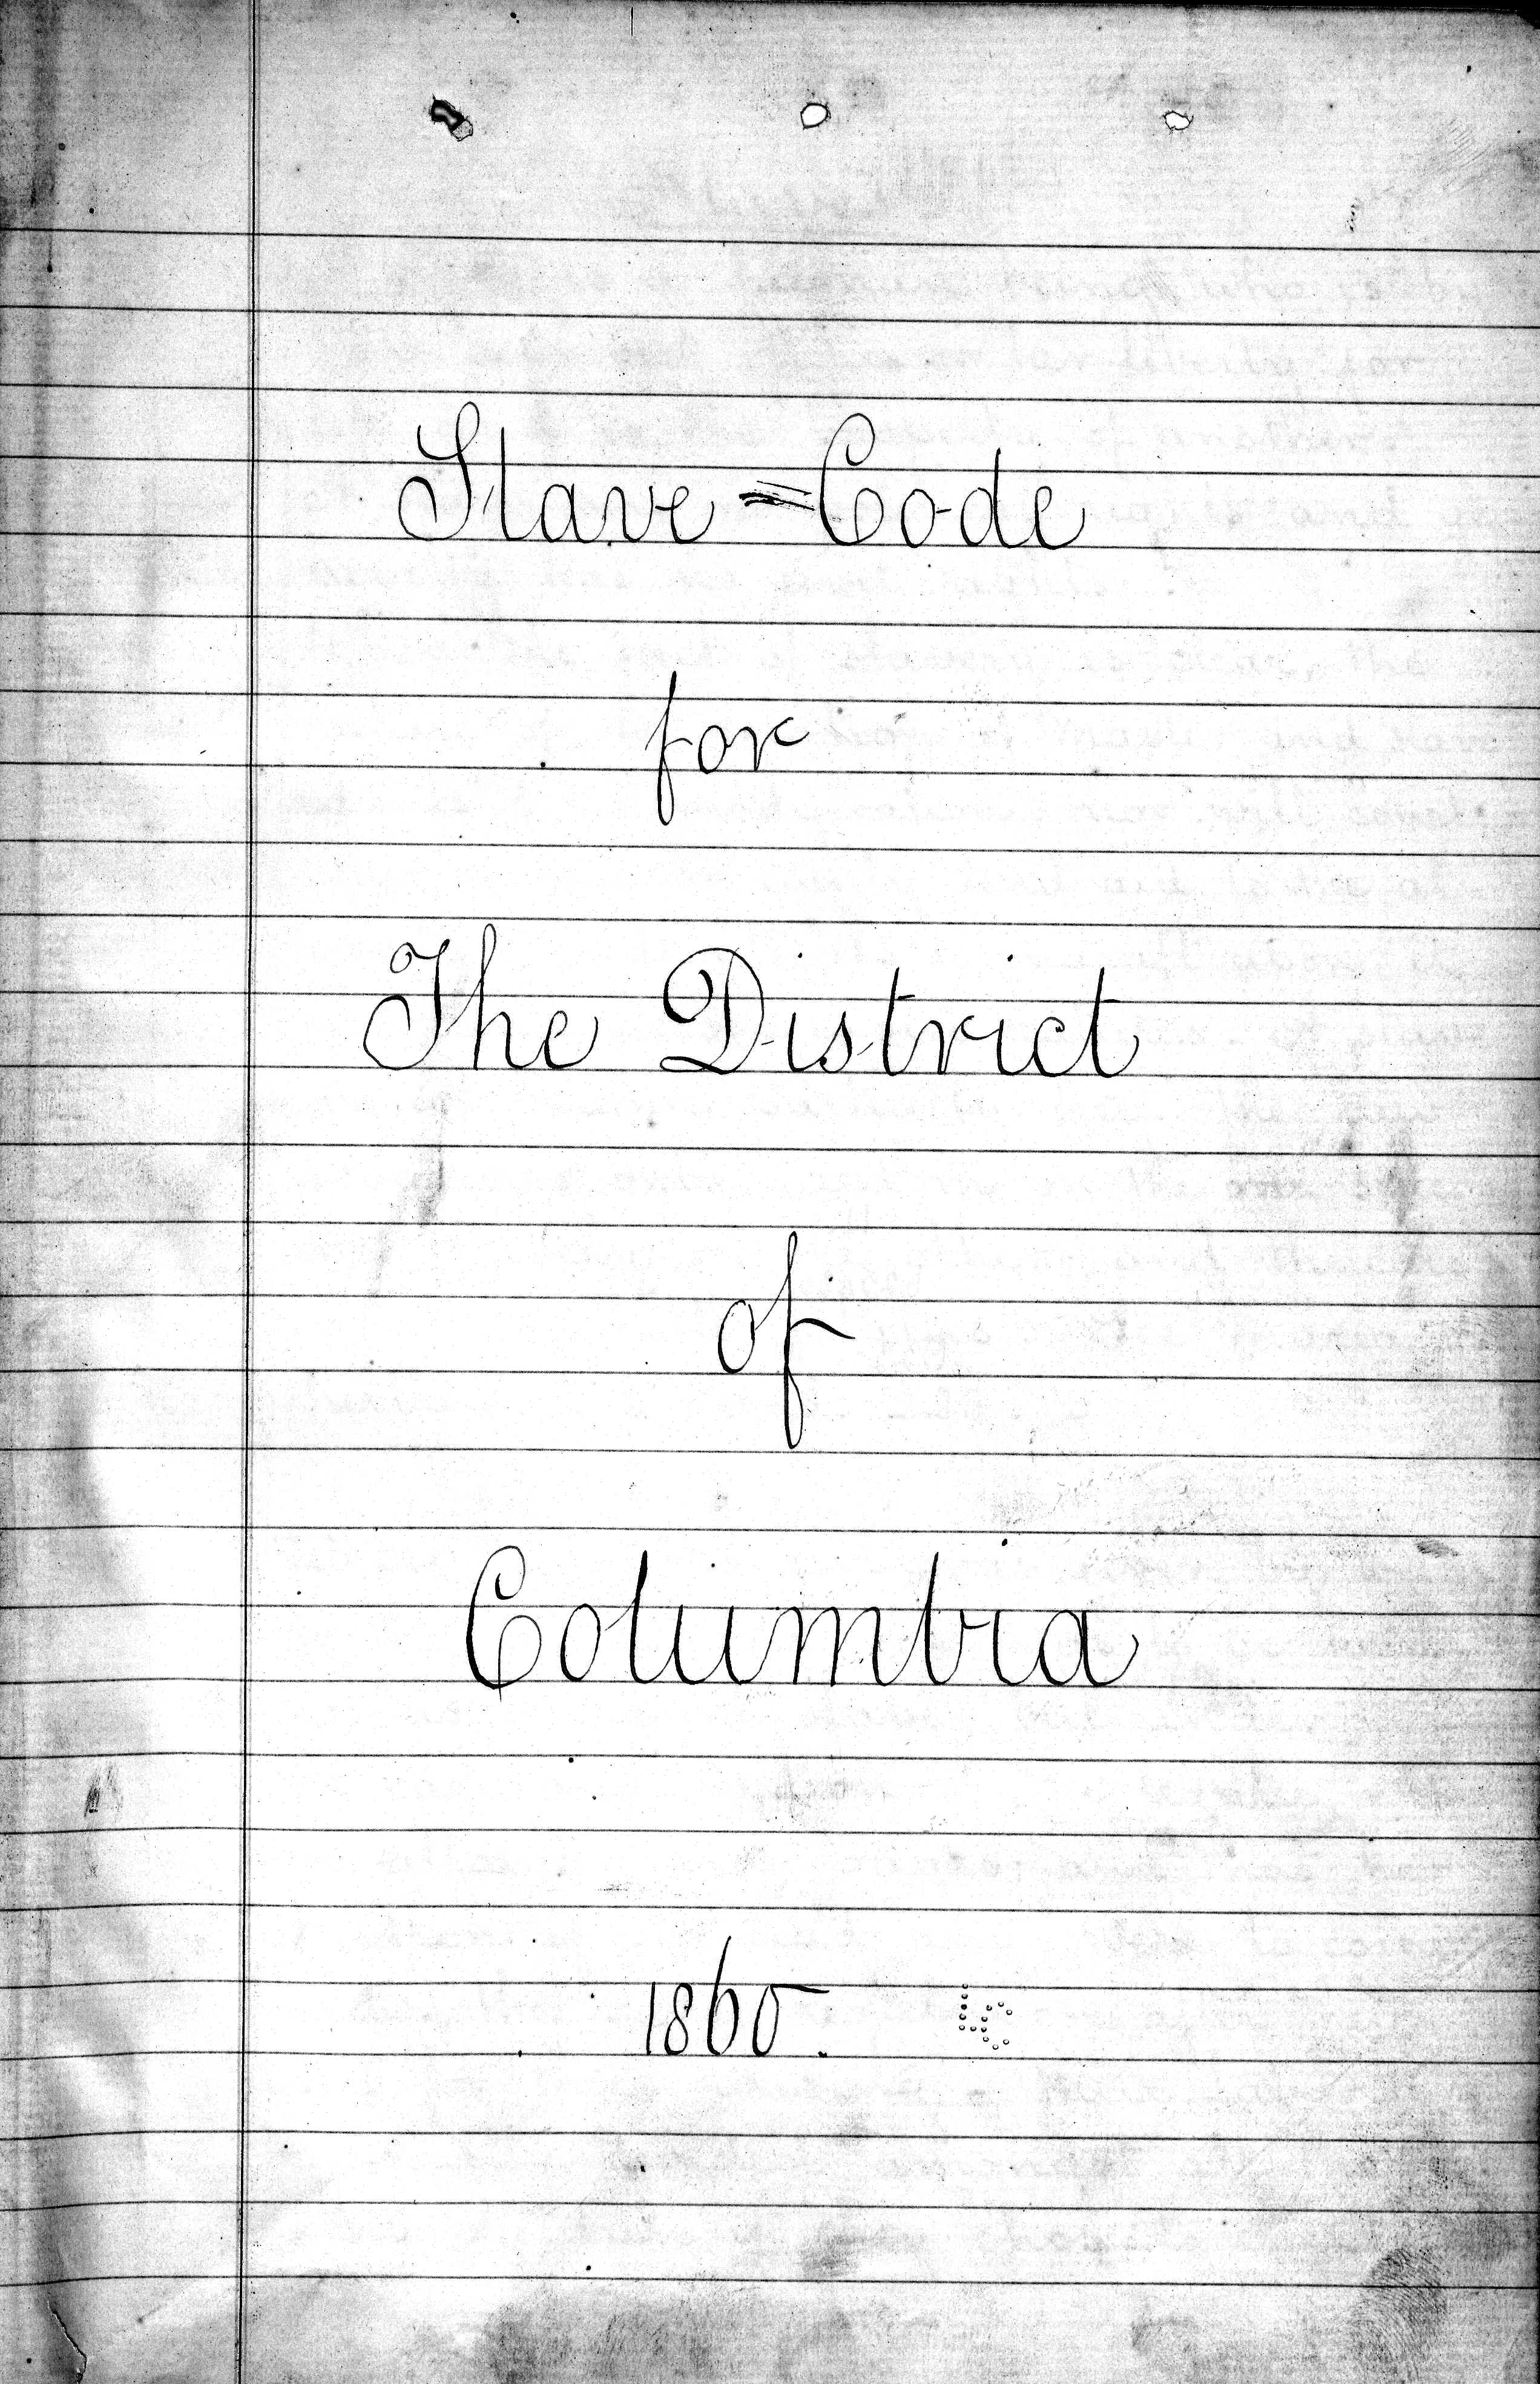 Slave=Code
for
The District
of
Columbia
1860.
LC